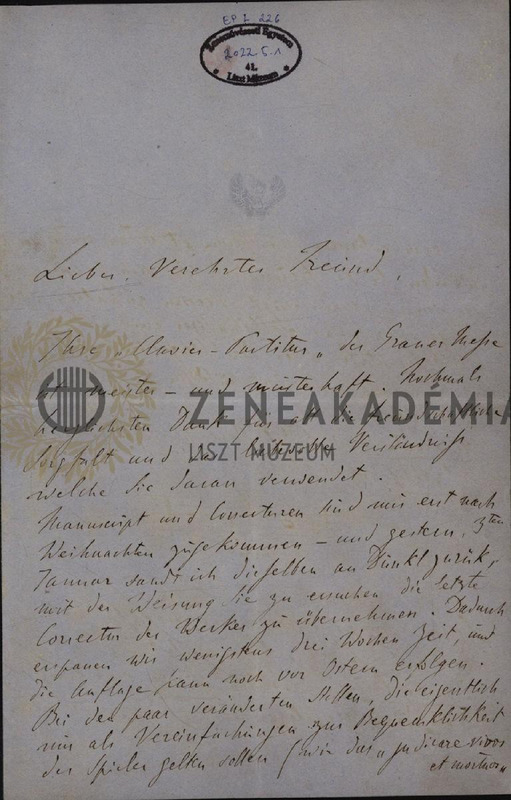 EP 1 226
Zeneművészeti Egyetem
2022.5.1
41.
Liszt Múzeum
Lieber, Verehrter Freund,
Ihre „Clavier-Partitur„ der Graner Messe
ist meister- und musterhaft. Nochmals
herzlichsten Dank für all die freundschaftliche
ZENEAKADÉMIA
LISZT MÚZEUM
Sorgfalt und das Verständniss
welche Sie daran verwendet.
Manuscript und Correcturen sind mir erst nach
Weihnachten zugekommen – und gestern, 3ten
Januar sandte ich dieselben an Dunkl zurück,
mit der Weisung Sie zu ersuchen die letzte
Correctur des Werkes zu übernehmen. Dadurch
ersparen wir wenigstens drei Wochen Zeit, und
die Auflage kann noch vor Ostern erfolgen.
Bei den paar veränderten Stellen, die eigentlich
nur als Vereinfachungen zur Bequemlichkeit
der Spieler gelten sollen (wie das „judicare vivos
et mortuos„